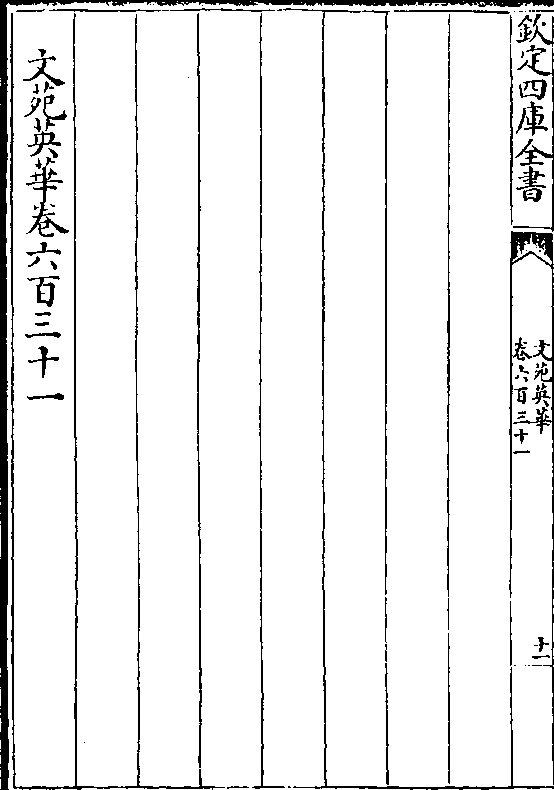 欽定四庫全書
文苑英華
卷六百三十一
十一
文苑英華卷六百三十一